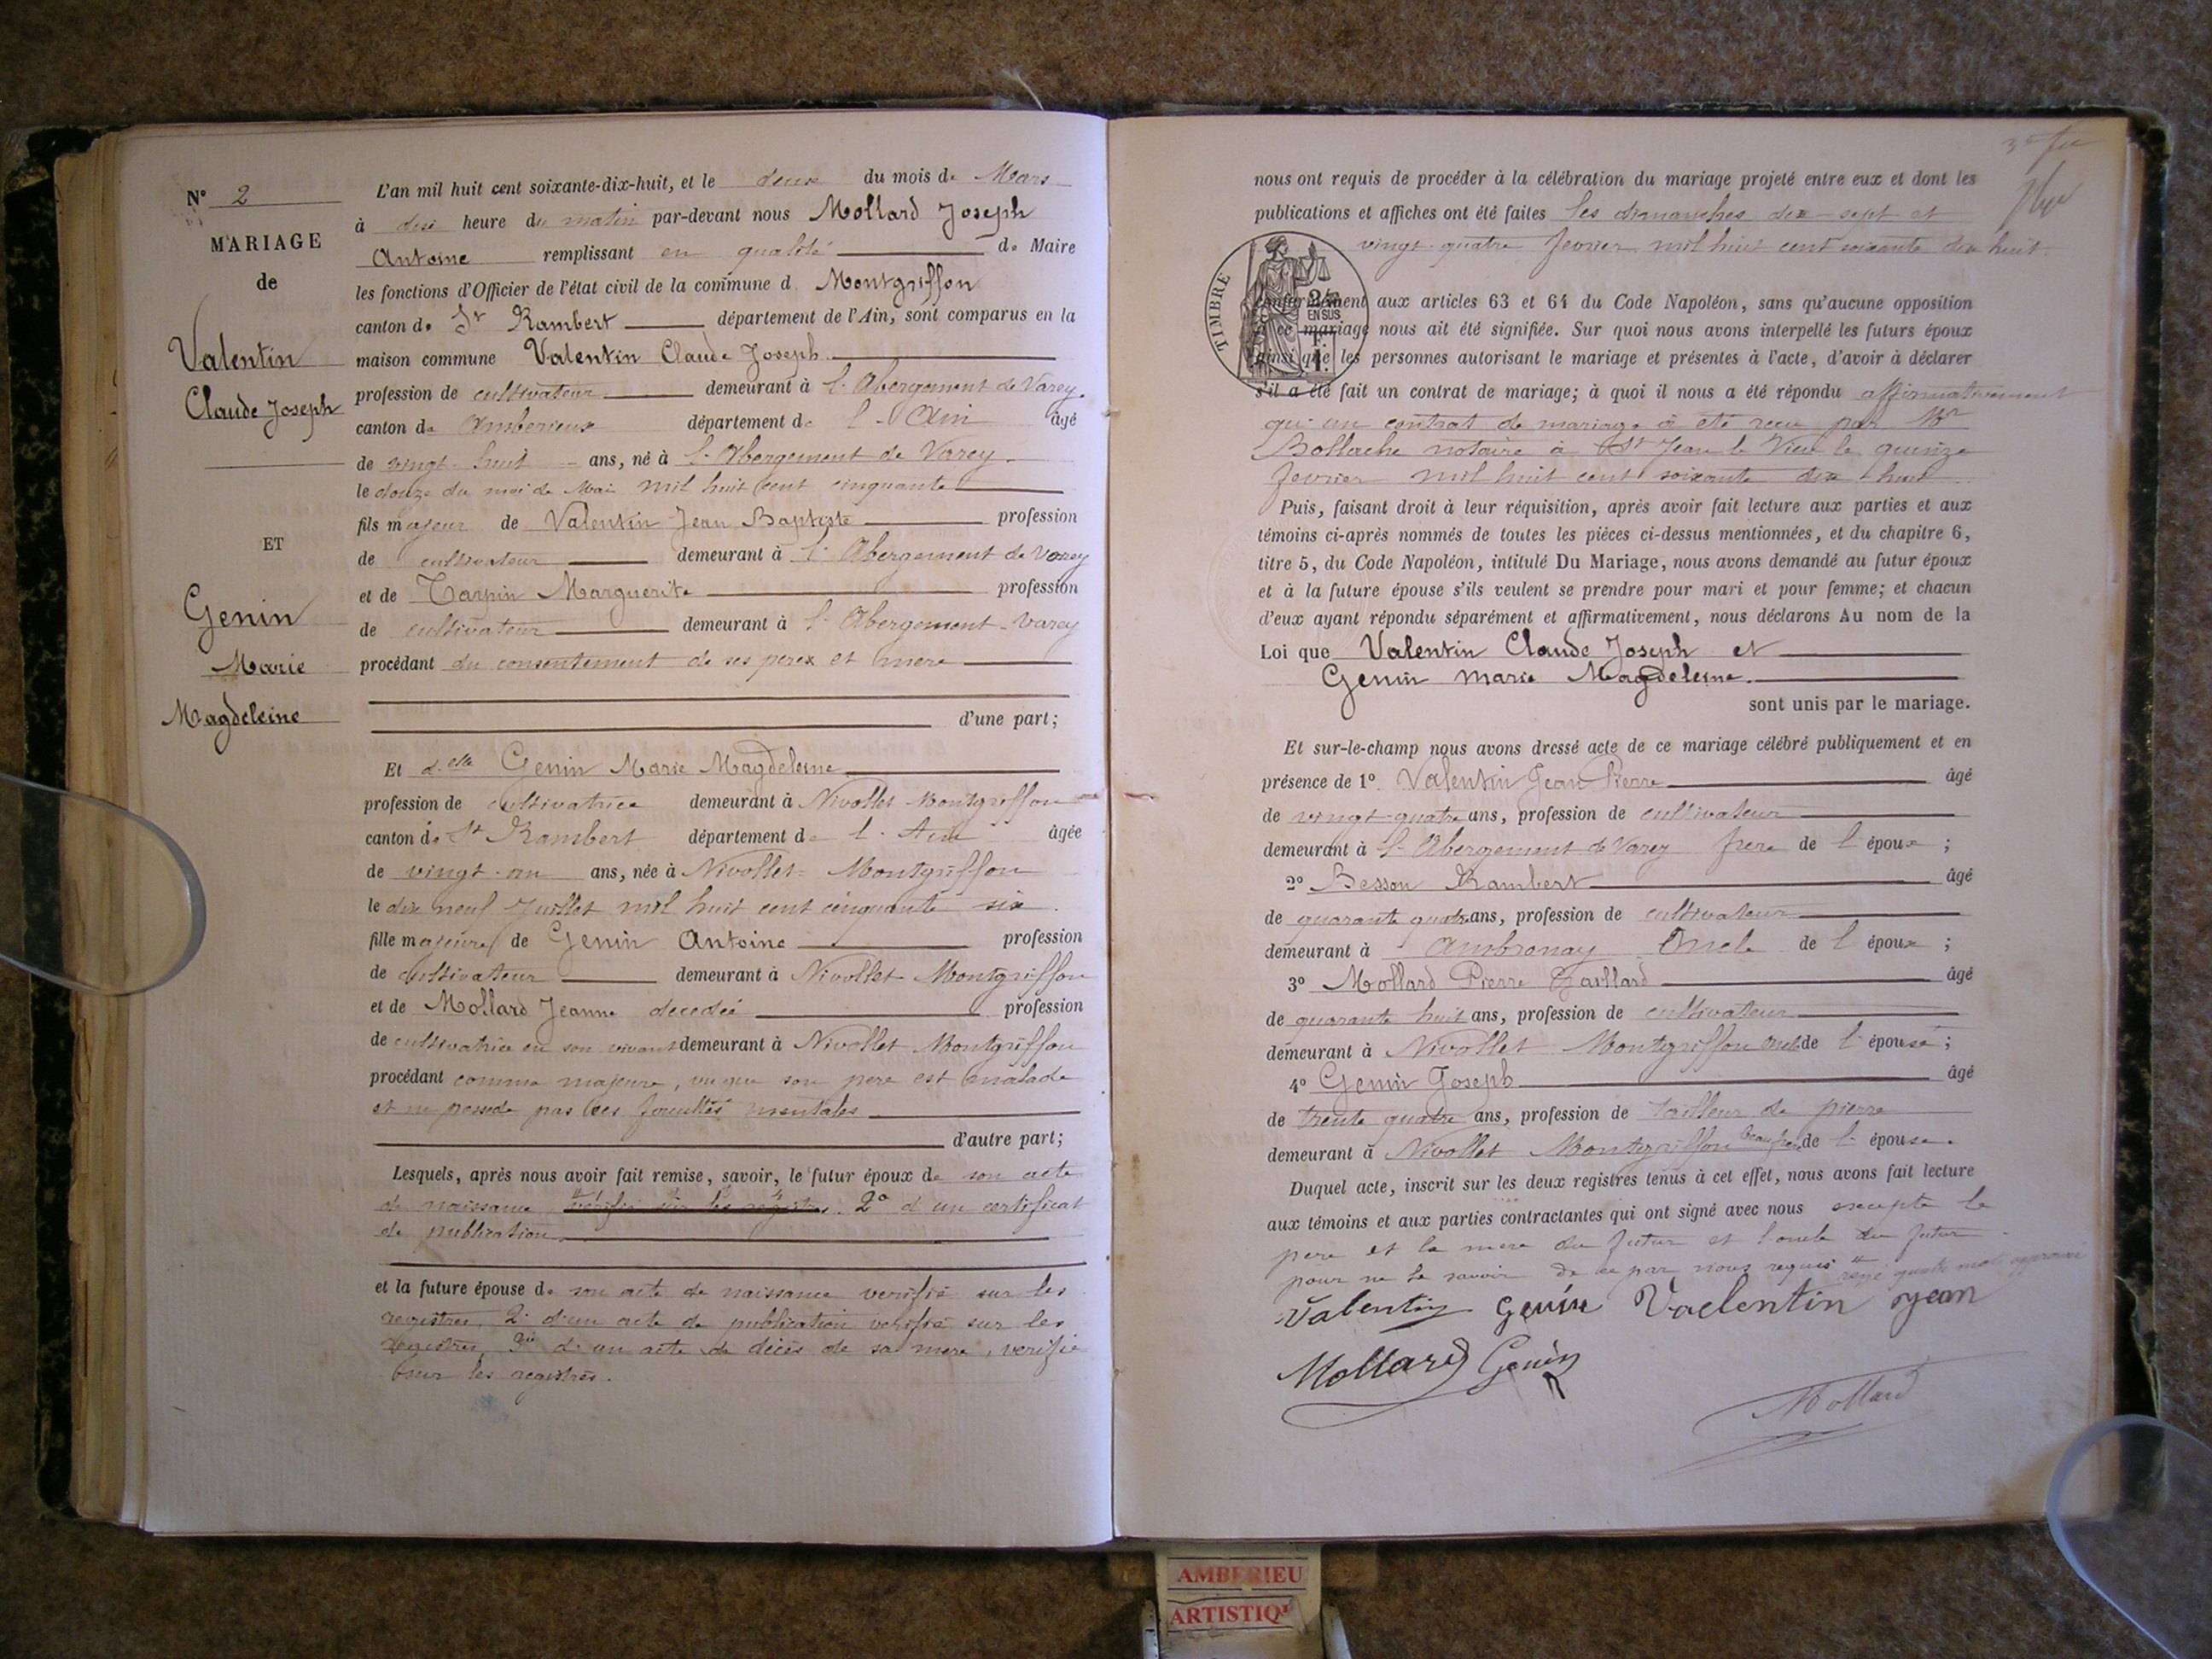 N° 2
MARIAGE
de
Valentin
Claude Joseph
ET
Genin
Marie
Magdeleine
L'an mil huit cent soixante-dix-huit, et le deux du mois de Mars
à dix heure du matin par-devant nous Mollard Joseph
Antoine remplissant en qualité de Maire
les fonctions d'Officier de l'état civil de la commune d Montgriffon
canton de St Rambert département de l'Ain, sont comparus en la
maison commune Valentin Claude Joseph
profession de cultivateur demeurant à l'Abergement de Varey.
canton de Amberieux département de l'Ain âgé
de vingt-huit ans, né à l'Abergement de Varey
le douze du moi de Mai mil huit cent cinquante
fils majeur de Valentin Jean Baptiste profession
de cultivateur demeurant à l'Abergement de Varey
et de Tarpin Marguerite profession
de cultivateur demeurant à l'Abergement-Varey
procédant du consentement de ses perex et mere
d'une part;
Et d.elle Genin Marie Magdeleine
profession de cultivatrice demeurant à Nivollet Montgriffon
canton de St Rambert département de l'Ain âgée
de vingt-un ans, née à Nivollet-Montgriffon
le dix neuf Juillet mil huit cent cinquante six
fille majeure de Genin Antoine profession
de cultivateur demeurant à Nivollet Montgriffon
et de Mollard Jeanne decedeé profession
de cultivatrice en son vivant demeurant à Nivollet Montgriffon
procédant comme majeure, vu que son pere est malade
et ne possede pas ses facultés mentales
d'autre part;
Lesquels, après nous avoir fait remise, savoir, le futur époux de son acte
de naissance verifié sur les registres. 2° d'un certificat
de publication
et la future épouse de son acte de naissance verifié sur les
registres, 2° d'un acte de publication verifié sur les
registres, 3° d'un acte de décès de sa mere, verifié
sur les registres.
nous ont requis de procéder à la célébration du mariage projeté entre eux et dont les
publications et affiches ont été faites les dimanches dix-sept et
vingt-quatre fevrier mil huit cent soixante dix huit
TIMBRE
2/10
EN SUS
F.
1.
conformément aux articles 63 et 64 du Code Napoléon, sans qu'aucune opposition
à ce mariage nous ait été signifiée. Sur quoi nous avons interpellé les futurs époux
ainsi que les personnes autorisant le mariage et présentes à l'acte, d'avoir à déclarer
s'il a été fait un contrat de mariage; à quoi il nous a été répondu affirmativement
qu'un contrat de mariage a été recu par Mr
Bollache notaire à St Jean le Vieux le quinze
fevrier mil huit cent soixante dix huit
Puis, faisant droit à leur réquisition, après avoir fait lecture aux parties et aux
témoins ci-après nommés de toutes les pièces ci-dessus mentionnées, et du chapitre 6,
titre 5, du Code Napoléon, intitulé Du Mariage, nous avons demandé au futur époux
et à la future épouse s'ils veulent se prendre pour mari et pour femme; et chacun
d'eux ayant répondu séparément et affirmativement, nous déclarons Au nom de la
Loi que Valentin Claude Joseph et
Genin Marie Magdeleine.
sont unis par le mariage.
Et sur-le-champ nous avons dressé acte de ce mariage célébré publiquement et en
présence de 1° Valentin Jean Pierre âgé
de vingt-quatre ans, profession de cultivateur
demeurant à l'Abergement de Varey frere de l'époux;
2° Besson Rambert âgé
de quarante quatre ans, profession de cultivateur
demeurant à Ambronay Oncle de l'époux;
3° Mollard Pierre Gaillard âgé
de quarante huit ans, profession de cultivateur
demeurant à Nivollet Montgriffon oncle de l'épouse;
4° Genin Joseph âgé
de trente quatre ans, profession de tailleur de pierre
demeurant à Nivollet Montgriffon beau frere de l'épouse.
Duquel acte, inscrit sur les deux registres tenus à cet effet, nous avons fait lecture
aux témoins et aux parties contractantes qui ont signé avec nous excepte le
pere et la mere du futur et l'oncle du futur
pour ne le savoir de ce par nous requis rayé quatre mots approuvé
Valentin Genin Valentin Jean
Mollard Genin
Mollard
AMBERIEU
ARTISTIQ